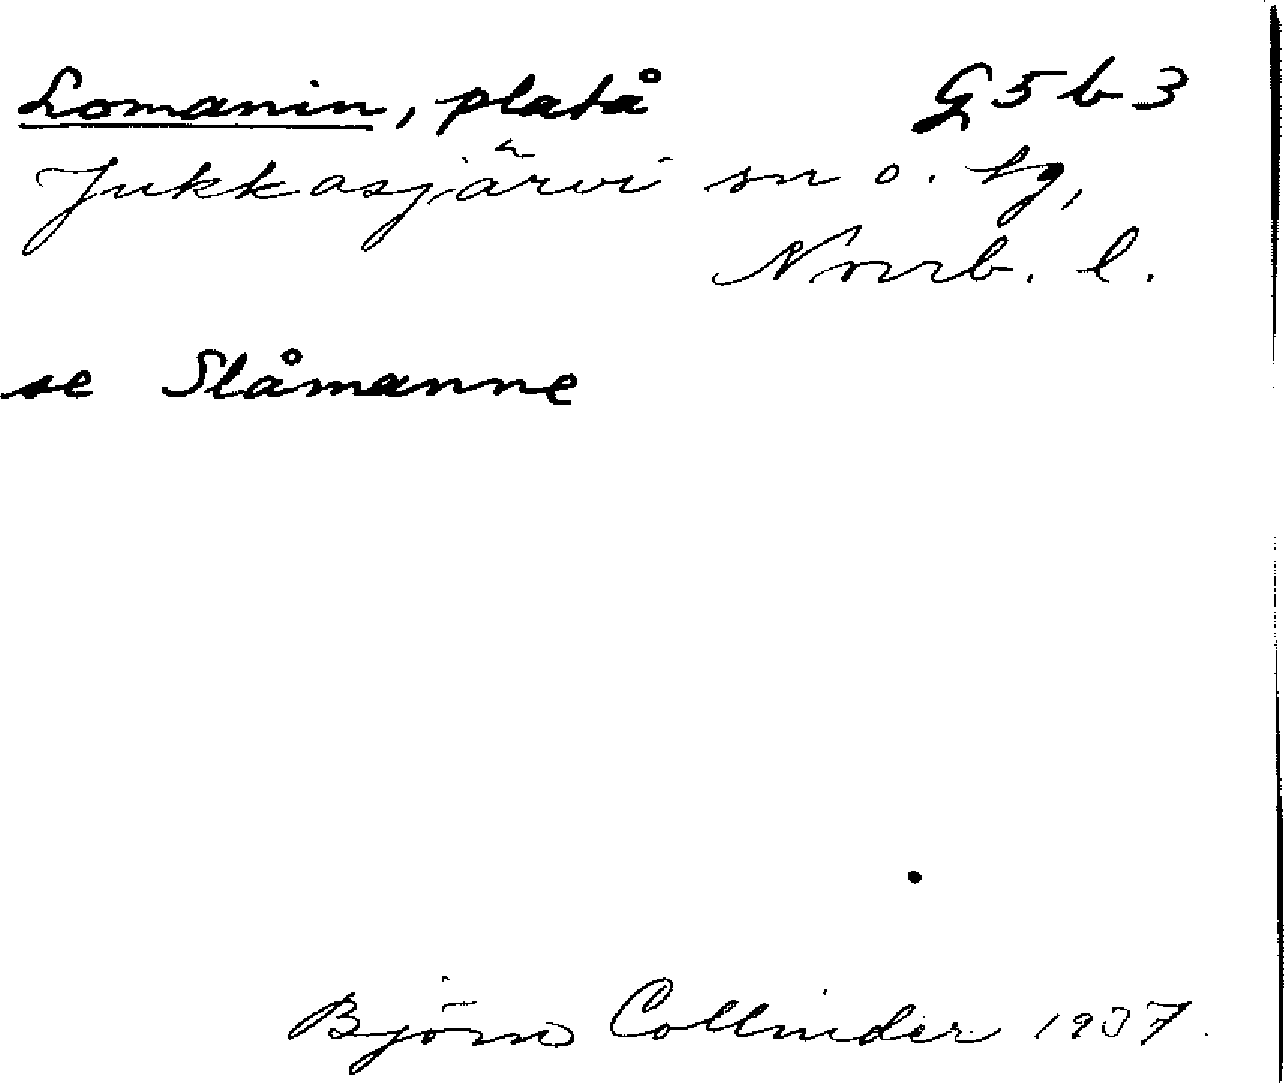 Lomanin, platå G5b3
Jukkasjärvi sn o. tg,
Norrb. l.
se Slåmanne
Björn Collinder 1937.